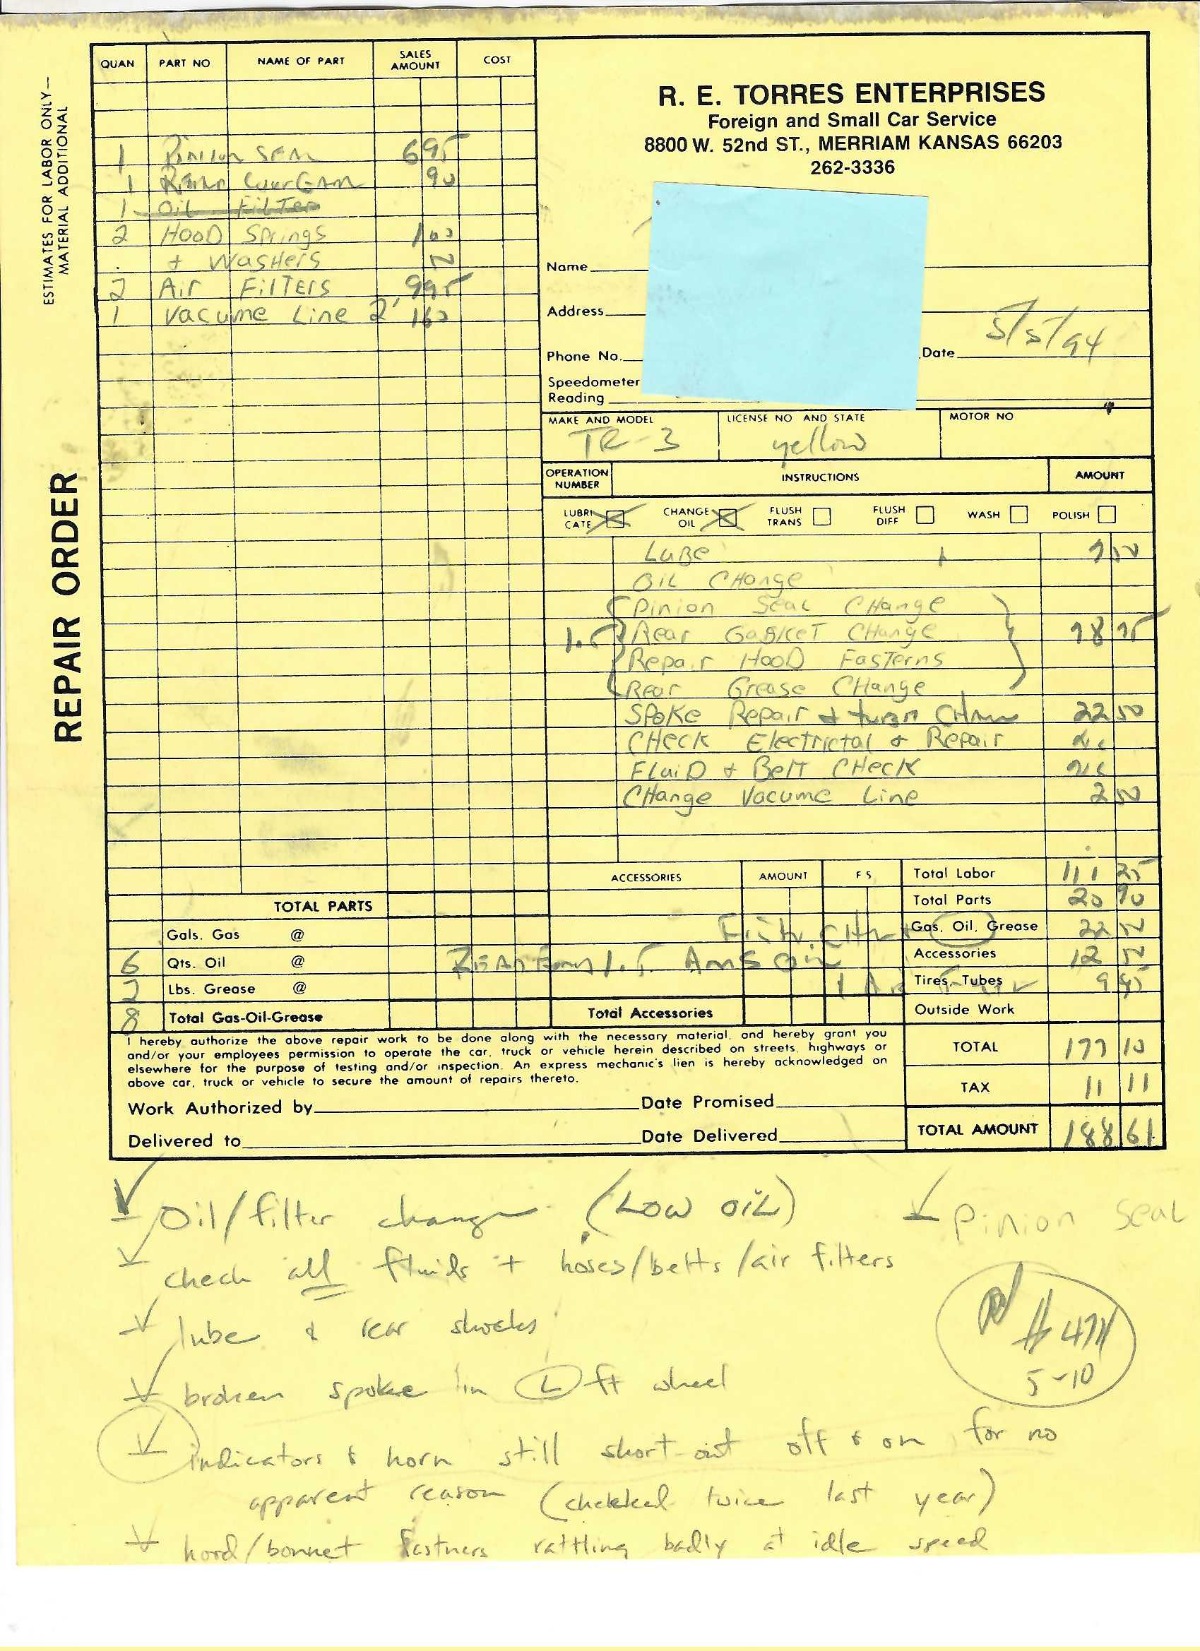 QUAN PART NO NAME OF PART SALES AMOUNT COST
ESTIMATES FOR LABOR ONLY—
MATERIAL ADDITIONAL
REPAIR ORDER
1 Pinion Seal 6 95
1 Rear Cover Gask 90
1 Oil Filter
2 Hood Springs 1 00
+ Washers N
2 Air Filters 9 95
1 Vacume Line 2' 1 60
R. E. TORRES ENTERPRISES
Foreign and Small Car Service
8800 W. 52nd ST., MERRIAM KANSAS 66203
262-3336
Name
Address
Phone No. Date 5/5/94
Speedometer
Reading
MAKE AND MODEL LICENSE NO AND STATE MOTOR NO
TR-3 yellow
OPERATION NUMBER INSTRUCTIONS AMOUNT
LUBRICATE CHANGE OIL FLUSH TRANS FLUSH DIFF WASH POLISH
Lube 7 50
Oil Change
Pinion Seal Change
1.5 Rear Gasket Change 78 75
Repair Hood Fasterns
Rear Grease Change
Spoke Repair + turn 22 50
Check Electrictal + Repair
Fluid + Belt Check
Change Vacume Line 2 50
ACCESSORIES AMOUNT F S
TOTAL PARTS
Gals. Gas @
6 Qts. Oil @
2 Lbs. Grease @
8 Total Gas-Oil-Grease
Total Accessories
Total Labor 111 25
Total Parts 20 90
Gas, Oil, Grease 22 50
Accessories 12 50
Tires, Tubes 9 95
Outside Work
TOTAL 177 10
TAX 11 11
TOTAL AMOUNT 188 61
I hereby authorize the above repair work to be done along with the necessary material, and hereby grant you
and/or your employees permission to operate the car, truck or vehicle herein described on streets, highways or
elsewhere for the purpose of testing and/or inspection. An express mechanic's lien is hereby acknowledged on
above car, truck or vehicle to secure the amount of repairs thereto.
Work Authorized by Date Promised
Delivered to Date Delivered
Oil/filter change (Low oil) Pinion Seal
check all fluids + hoses/belts/air filters
lube & rear shocks
broken spoke in L ft wheel
5-10
indicators & horn still short out off & on for no
apparent reason (chekked twice last year)
hood/bonnet fastners rattling badly at idle speed